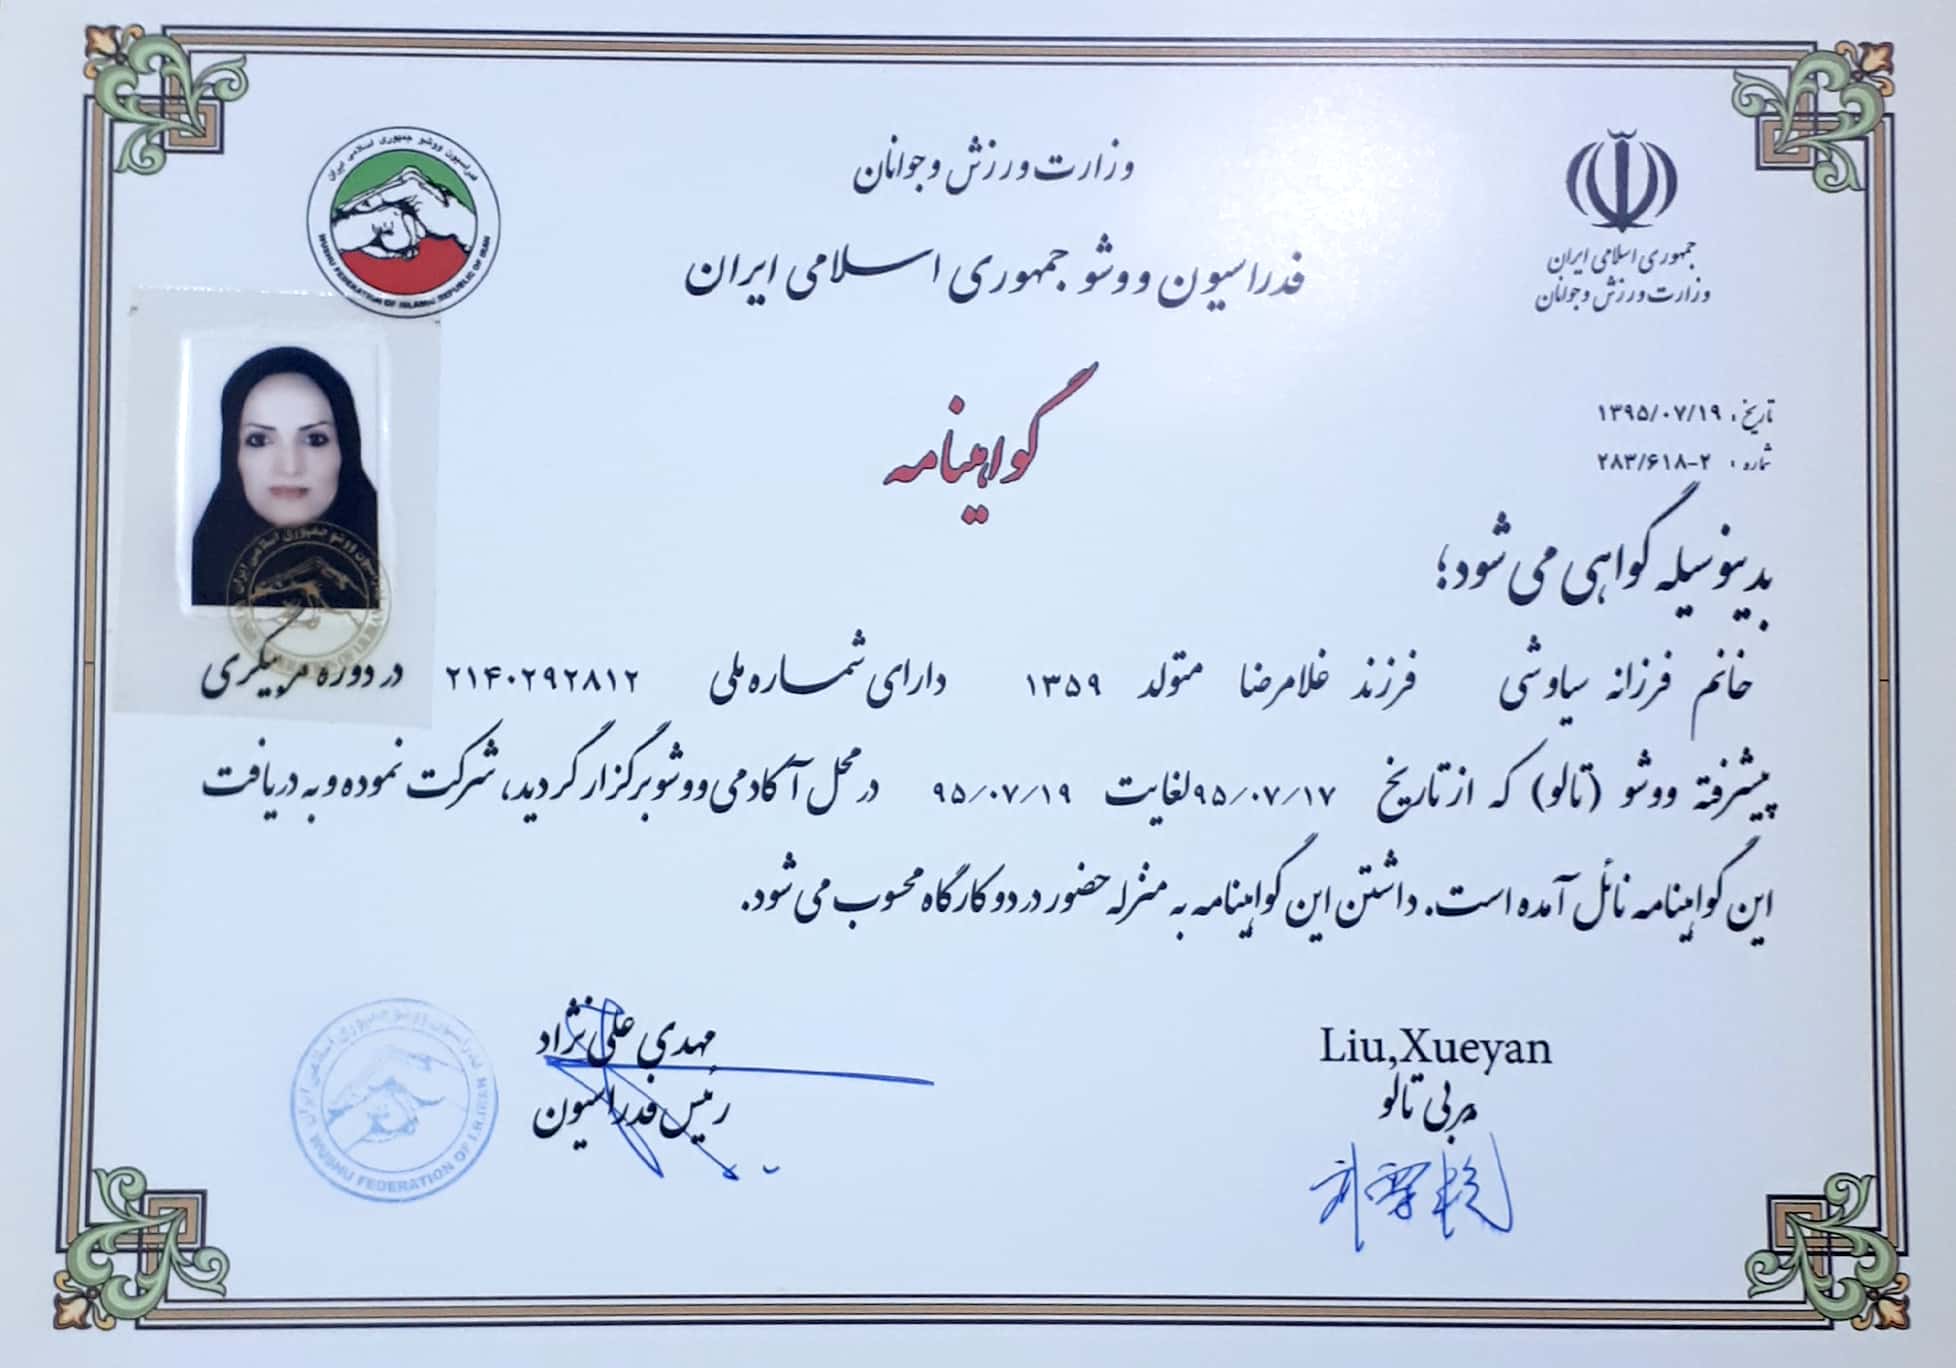 وزارت ورزش و جوانان
فدراسیون ووشو جمهوری اسلامی ایران
جمهوری اسلامی ایران
وزارت ورزش و جوانان
فدراسیون ووشو جمهوری اسلامی ایران
WUSHU FEDERATION OF ISLAMIC REPUBLIC OF IRAN
گواهینامه
تاریخ : ۱۳۹۵/۰۷/۱۹
شماره : ۲۸۳/۶۱۸-۲
بدینوسیله گواهی می شود؛
خانم فرزانه سیاوشی فرزند غلامرضا متولد ۱۳۵۹ دارای شماره ملی ۲۱۴۰۲۹۲۸۱۲ در دوره مربیگری
پیشرفته ووشو (تالو) که از تاریخ ۹۵/۰۷/۱۷ لغایت ۹۵/۰۷/۱۹ در محل آکادمی ووشو برگزار گردید، شرکت نموده و به دریافت
این گواهینامه نائل آمده است. داشتن این گواهینامه به منزله حضور در دو کارگاه محسوب می شود.
Liu,Xueyan
مربی تالو
مهدی علی نژاد
رئیس فدراسیون
فدراسیون ووشو جمهوری اسلامی ایران
WUSHU FEDERATION OF I.R.IRAN